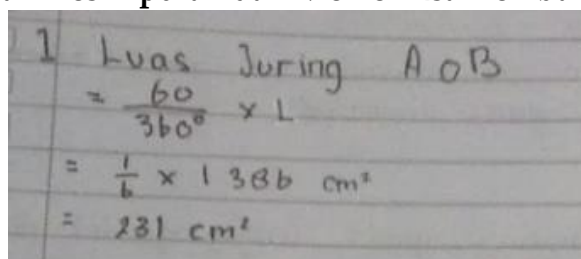 1 Luas Juring AOB
= 60/360° x L
= 1/6 x 1386 cm²
= 231 cm²